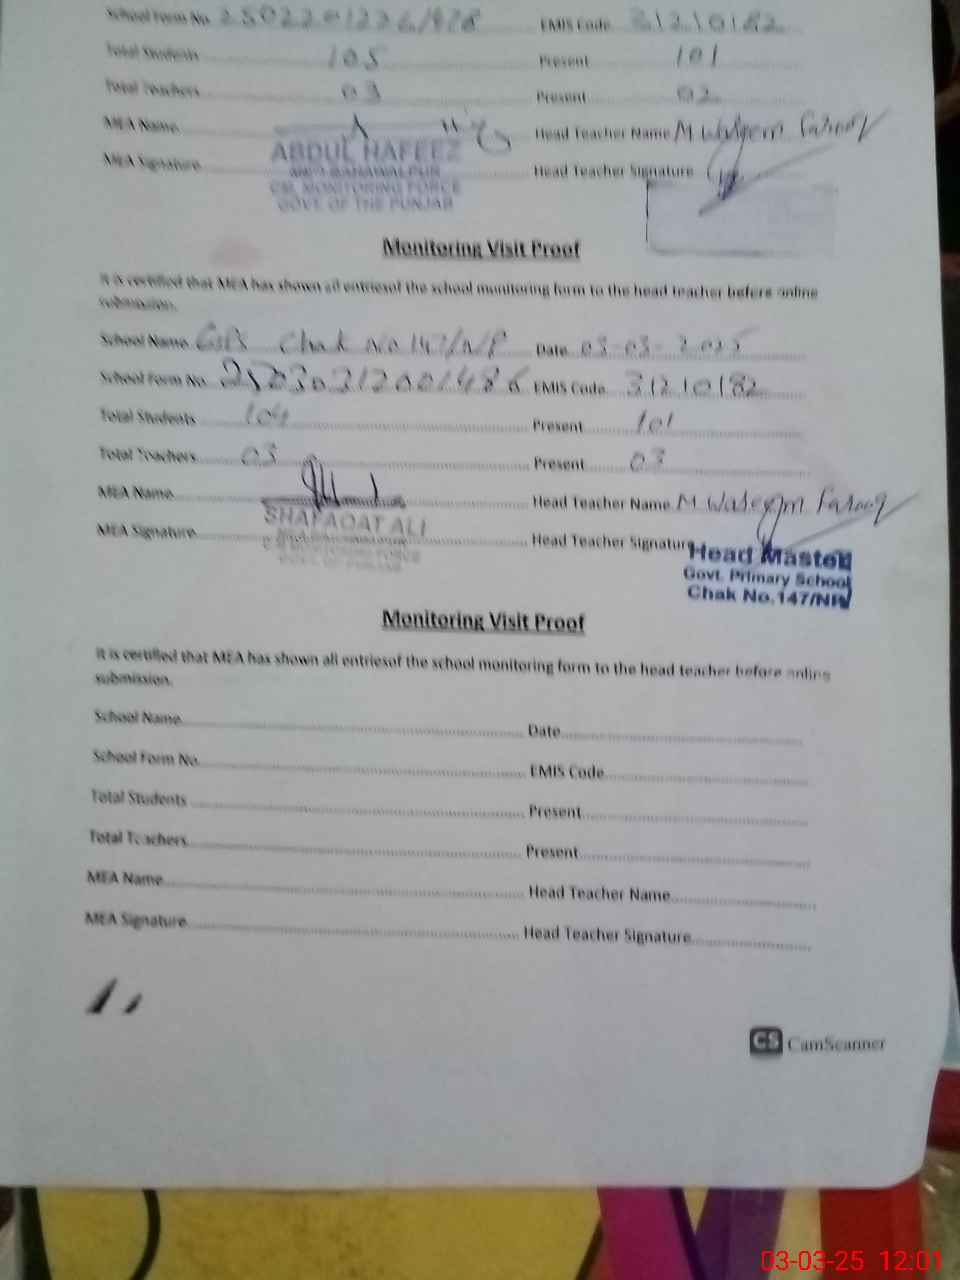 School Form No. EMIS Code 31210182
Total Students 105 Present 101
Total Teachers 03 Present 02
MEA Name Head Teacher Name M Waseem Farooq
MEA Signature Head Teacher Signature
ABDUL HAFEEZ
BAHAWALPUR
CM, MONITORING FORCE
GOVT. OF THE PUNJAB
Monitoring Visit Proof
It is certified that MEA has shown all entriesof the school monitoring form to the head teacher before online
submission.
School Name GPS Chak No 147/N/P Date 03-03-2025
School Form No. EMIS Code 31210182
Total Students 104 Present 101
Total Teachers 03 Present 03
MEA Name Head Teacher Name M Waseem Farooq
SHAFAQAT ALI
MEA Signature Head Teacher Signature
CM MONITORING FORCE
GOVT. OF PUNJAB
Head Master
Govt. Primary School
Chak No.147/NP
Monitoring Visit Proof
It is certified that MEA has shown all entriesof the school monitoring form to the head teacher before online
submission.
School Name Date
School Form No. EMIS Code
Total Students Present
Total Teachers Present
MEA Name Head Teacher Name
MEA Signature Head Teacher Signature
CS CamScanner
03-03-25 12:01